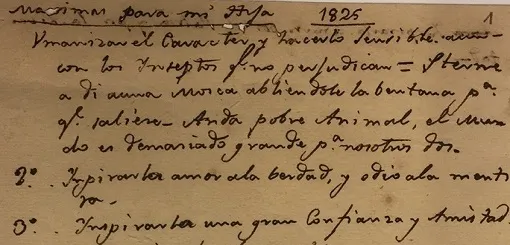 Maximas para mi Hija 1825 1
Vmanizar él Caracter y hacerlo sensible aun
con los Insectos q.e no perjudican = Sterne
a di auna Mosca abliendole la bentana p.a
q.e saliese - Anda pobre Animal, el Mun-
do es demaciado grande p.a nosotros dos.
2º. Inpirarla amor ala berdad, y odio ala menti
ra.
3º. Inspirarla una gran Confianza y Amistad